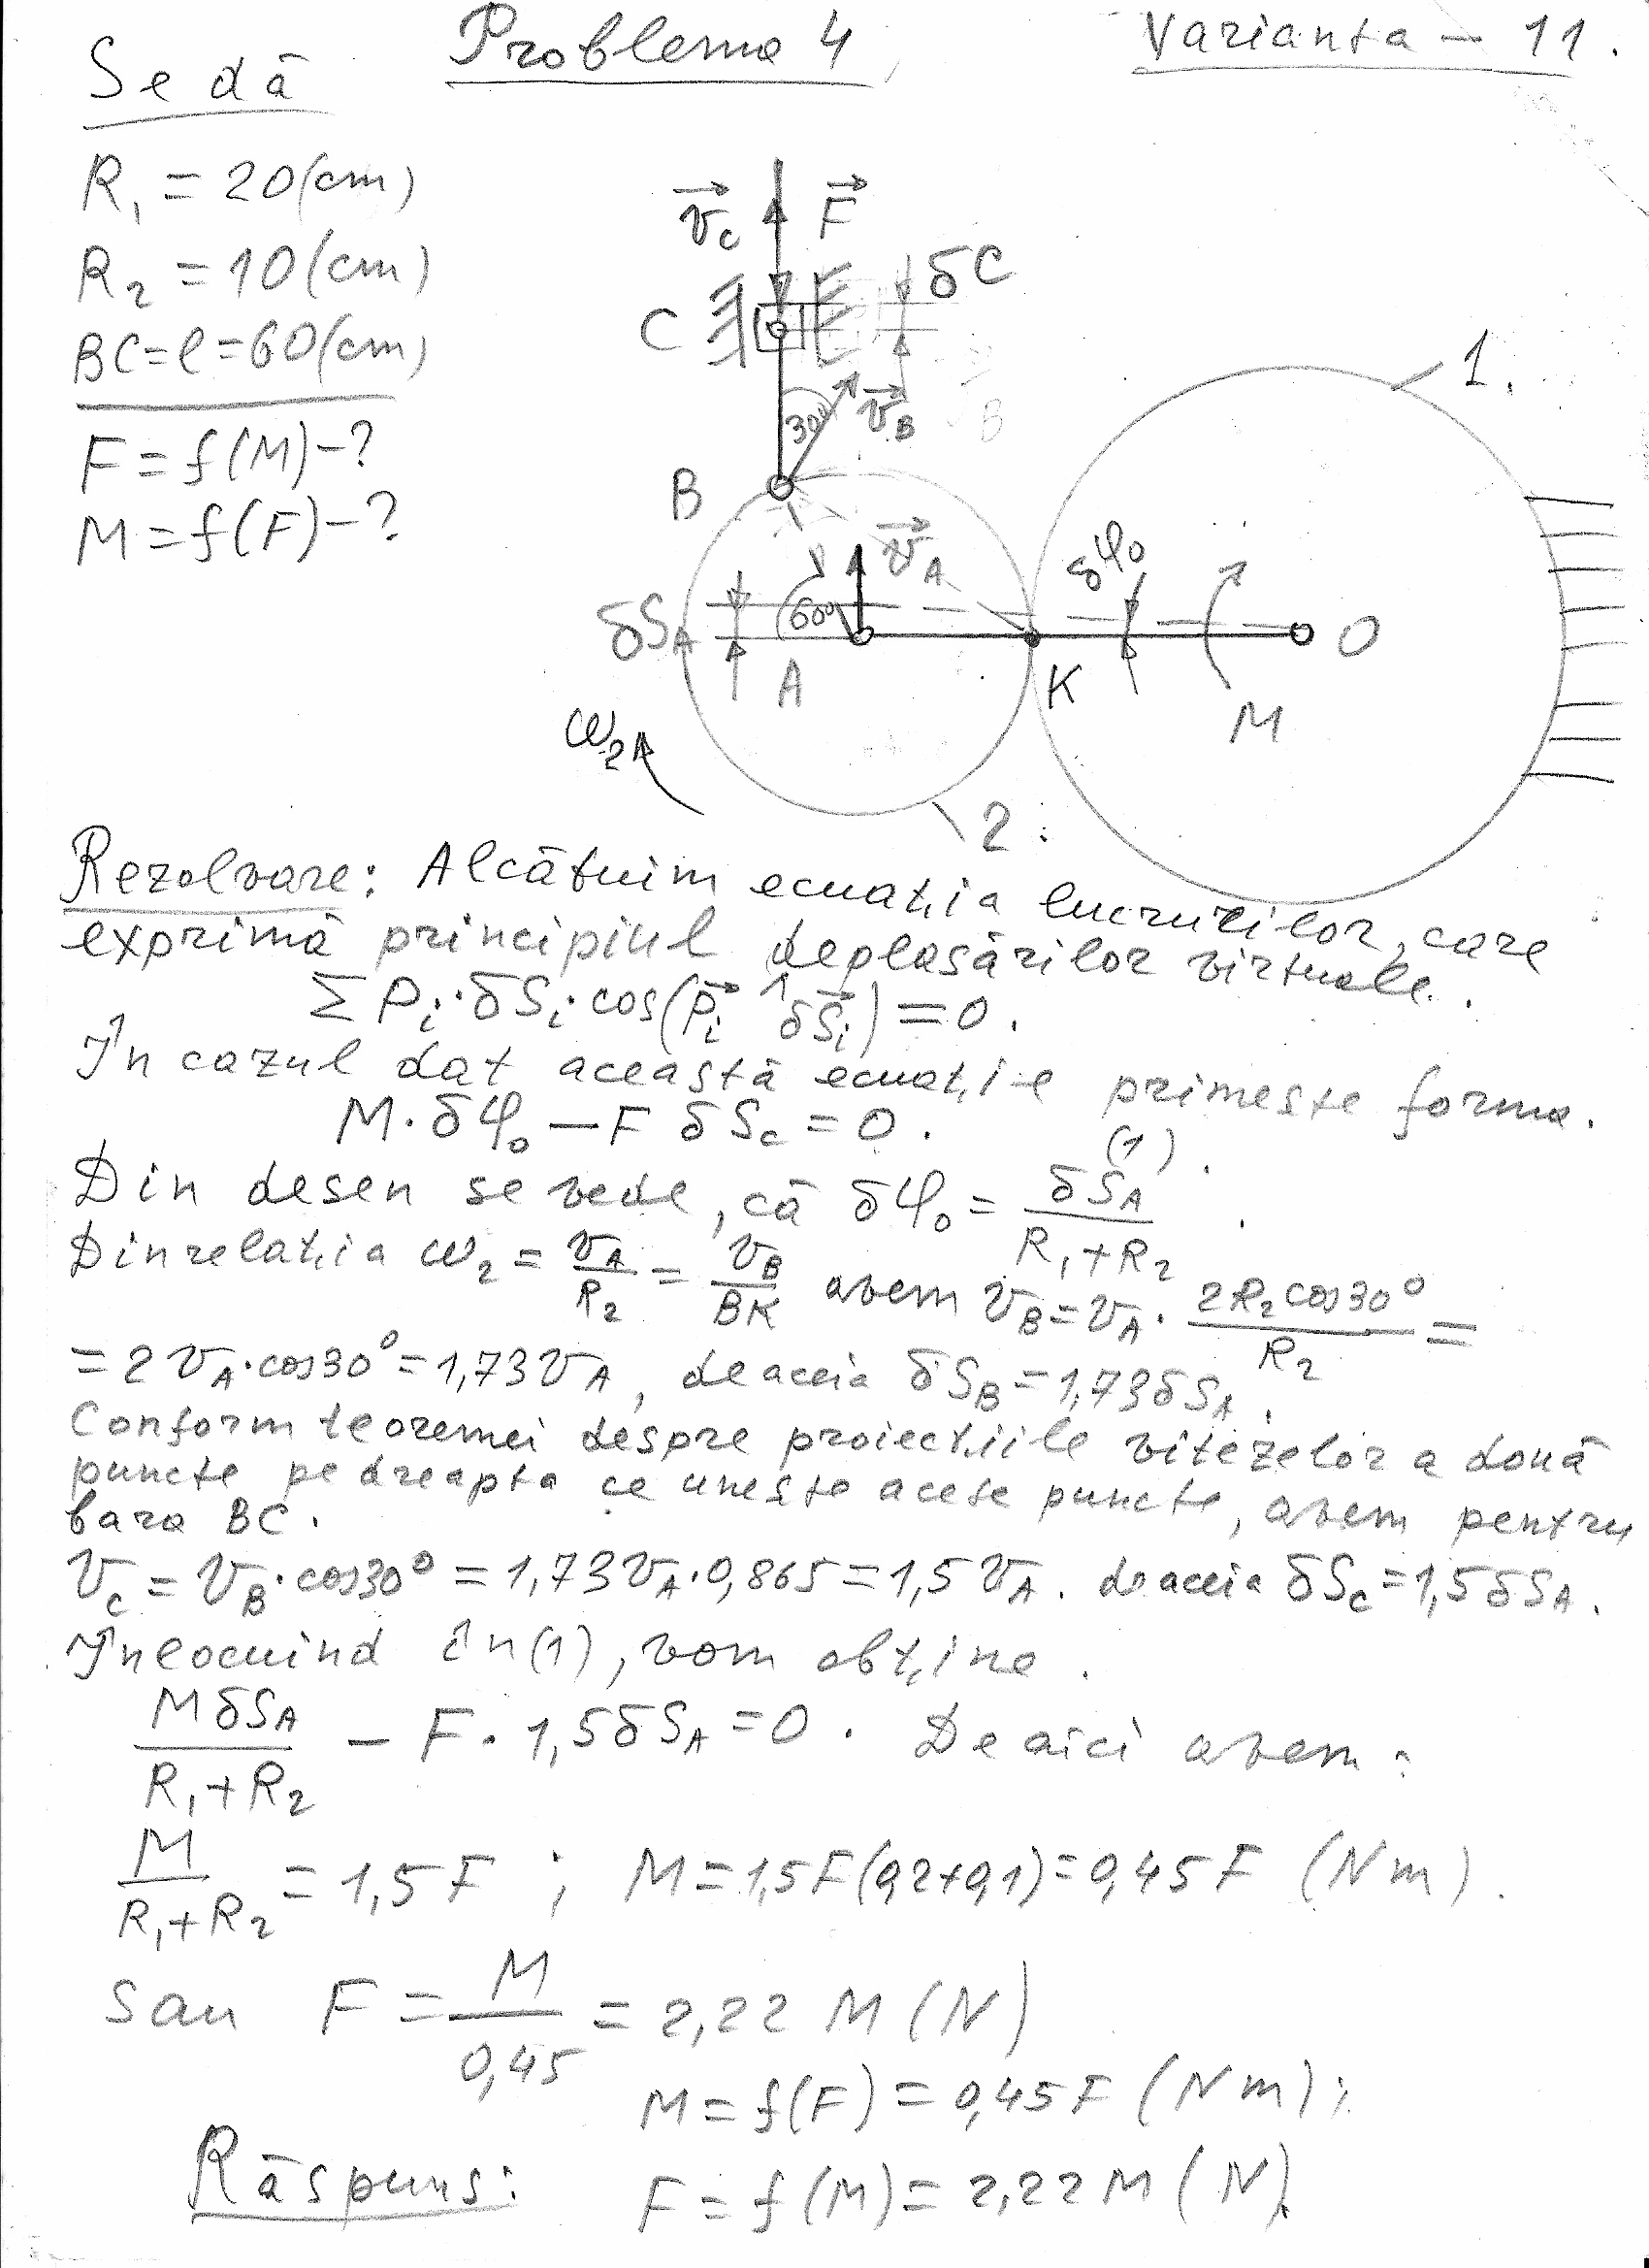 Problema 4
Varianta - 11.
Se dă
R₁ = 20(cm)
R₂ = 10(cm)
BC=l=60(cm)
F = f(M)-?
M = f(F)-?
v⃗c F⃗
δC
C
1.
30°
v⃗B
B
v⃗A
δφ₀
δSA
60°
O
A
K
M
ω₂
2
Rezolvare: Alcătuim ecuația lucrurilor, care
exprimă principiul deplasărilor virtuale.
Σ Pᵢ·δSᵢ·cos(P⃗ᵢ ^ δS⃗ᵢ) = 0.
În cazul dat această ecuație primește forma.
M·δφ₀ – F δSc = 0. (1).
Din desen se vede, că δφ₀ = δSA / (R₁+R₂).
Din relația ω₂ = vA/R₂ = vB/BK avem vB = vA · 2R₂cos30°/R₂ =
= 2vA·cos30° = 1,73vA, de aceia δSB = 1,73δSA.
Conform teoremei despre proiecțiile vitezelor a două
puncte pe dreapta ce unește acese puncte, avem pentru
bara BC.
vc = vB·cos30° = 1,73vA·0,865 = 1,5vA. de aceia δSc = 1,5δSA.
Înlocuind în (1), vom obține.
MδSA/(R₁+R₂) – F·1,5δSA = 0. De aici avem:
M/(R₁+R₂) = 1,5F ; M = 1,5F(0,2+0,1) = 0,45F (Nm).
Sau F = M/0,45 = 2,22 M (N)
M = f(F) = 0,45F (Nm);
Răspuns: F = f(M) = 2,22M (N).